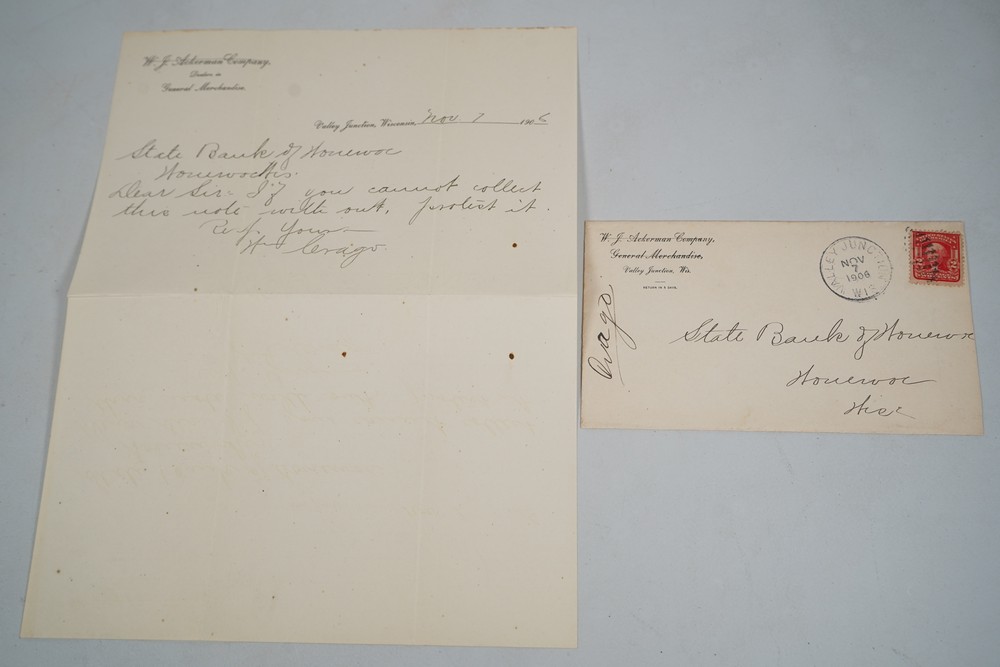 W. J. Ackerman Company,
Dealers in
General Merchandise.
Valley Junction, Wisconsin, Nov 7 1906
State Bank of Wonewoc
Wonewoc Wis.
Dear Sir- If you cannot collect
this note with out, protest it.
Yours
W Crago
W. J. Ackerman Company,
General Merchandise,
Valley Junction, Wis.
RETURN IN 5 DAYS.
Crago
VALLEY JUNCTION
NOV
7
1906
WIS
2
State Bank of Wonewoc
Wonewoc
Wis